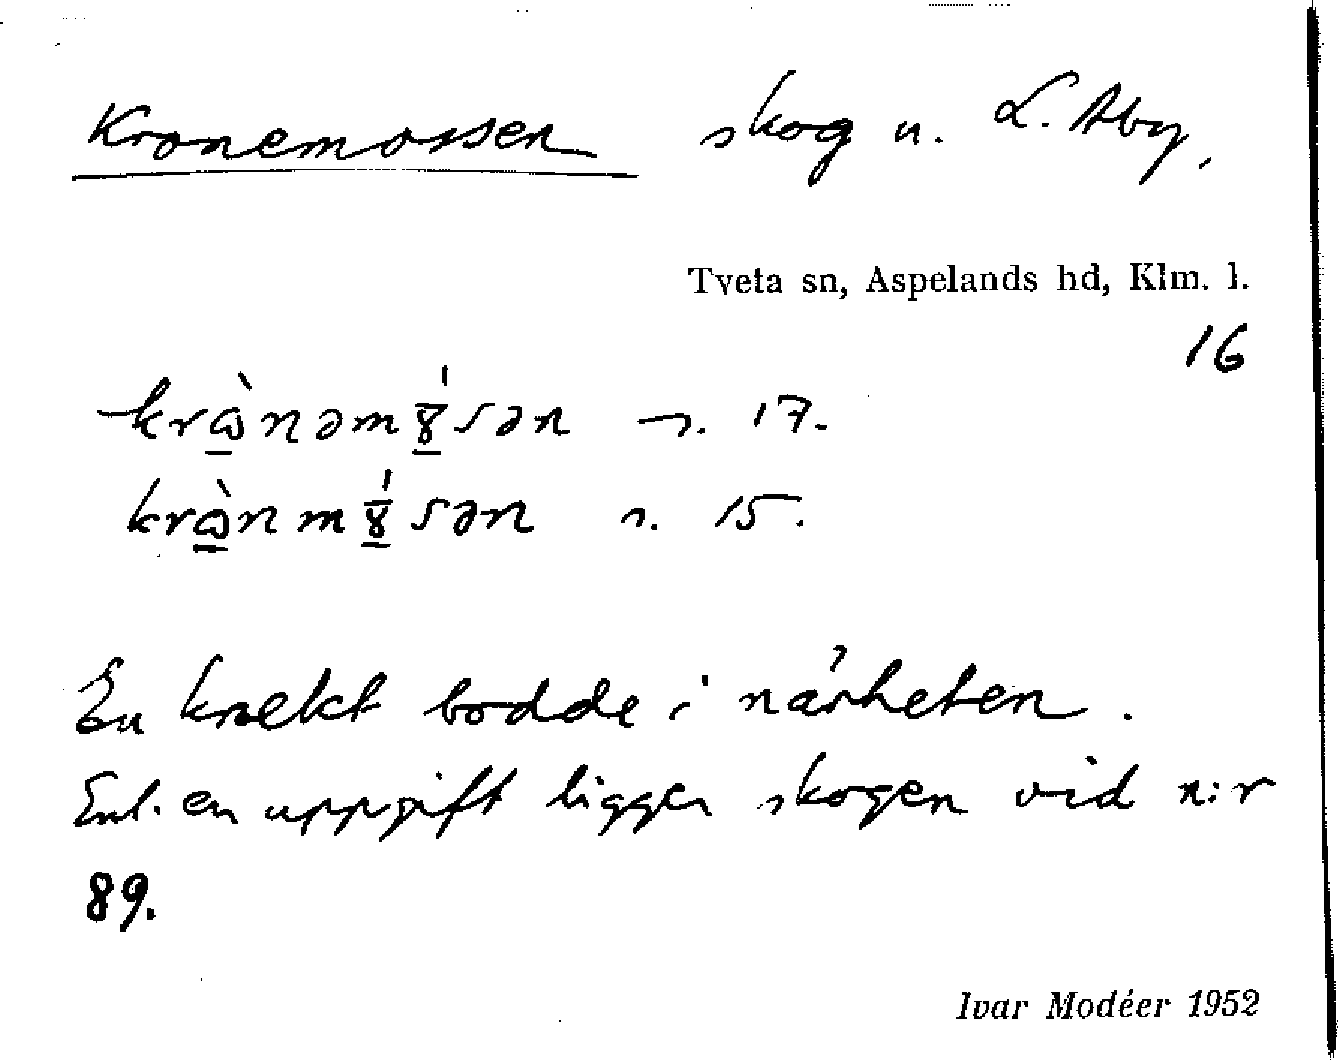 Kronemossen skog u. L. Aby,
Tveta sn, Aspelands hd, Klm. l.
16
krὼnəmɤ́sən s. 17.
krὼnmɤ́sən s. 15.
En knekt bodde i närheten.
Enl. en uppgift ligger skogen vid n:r
89.
Ivar Modéer 1952